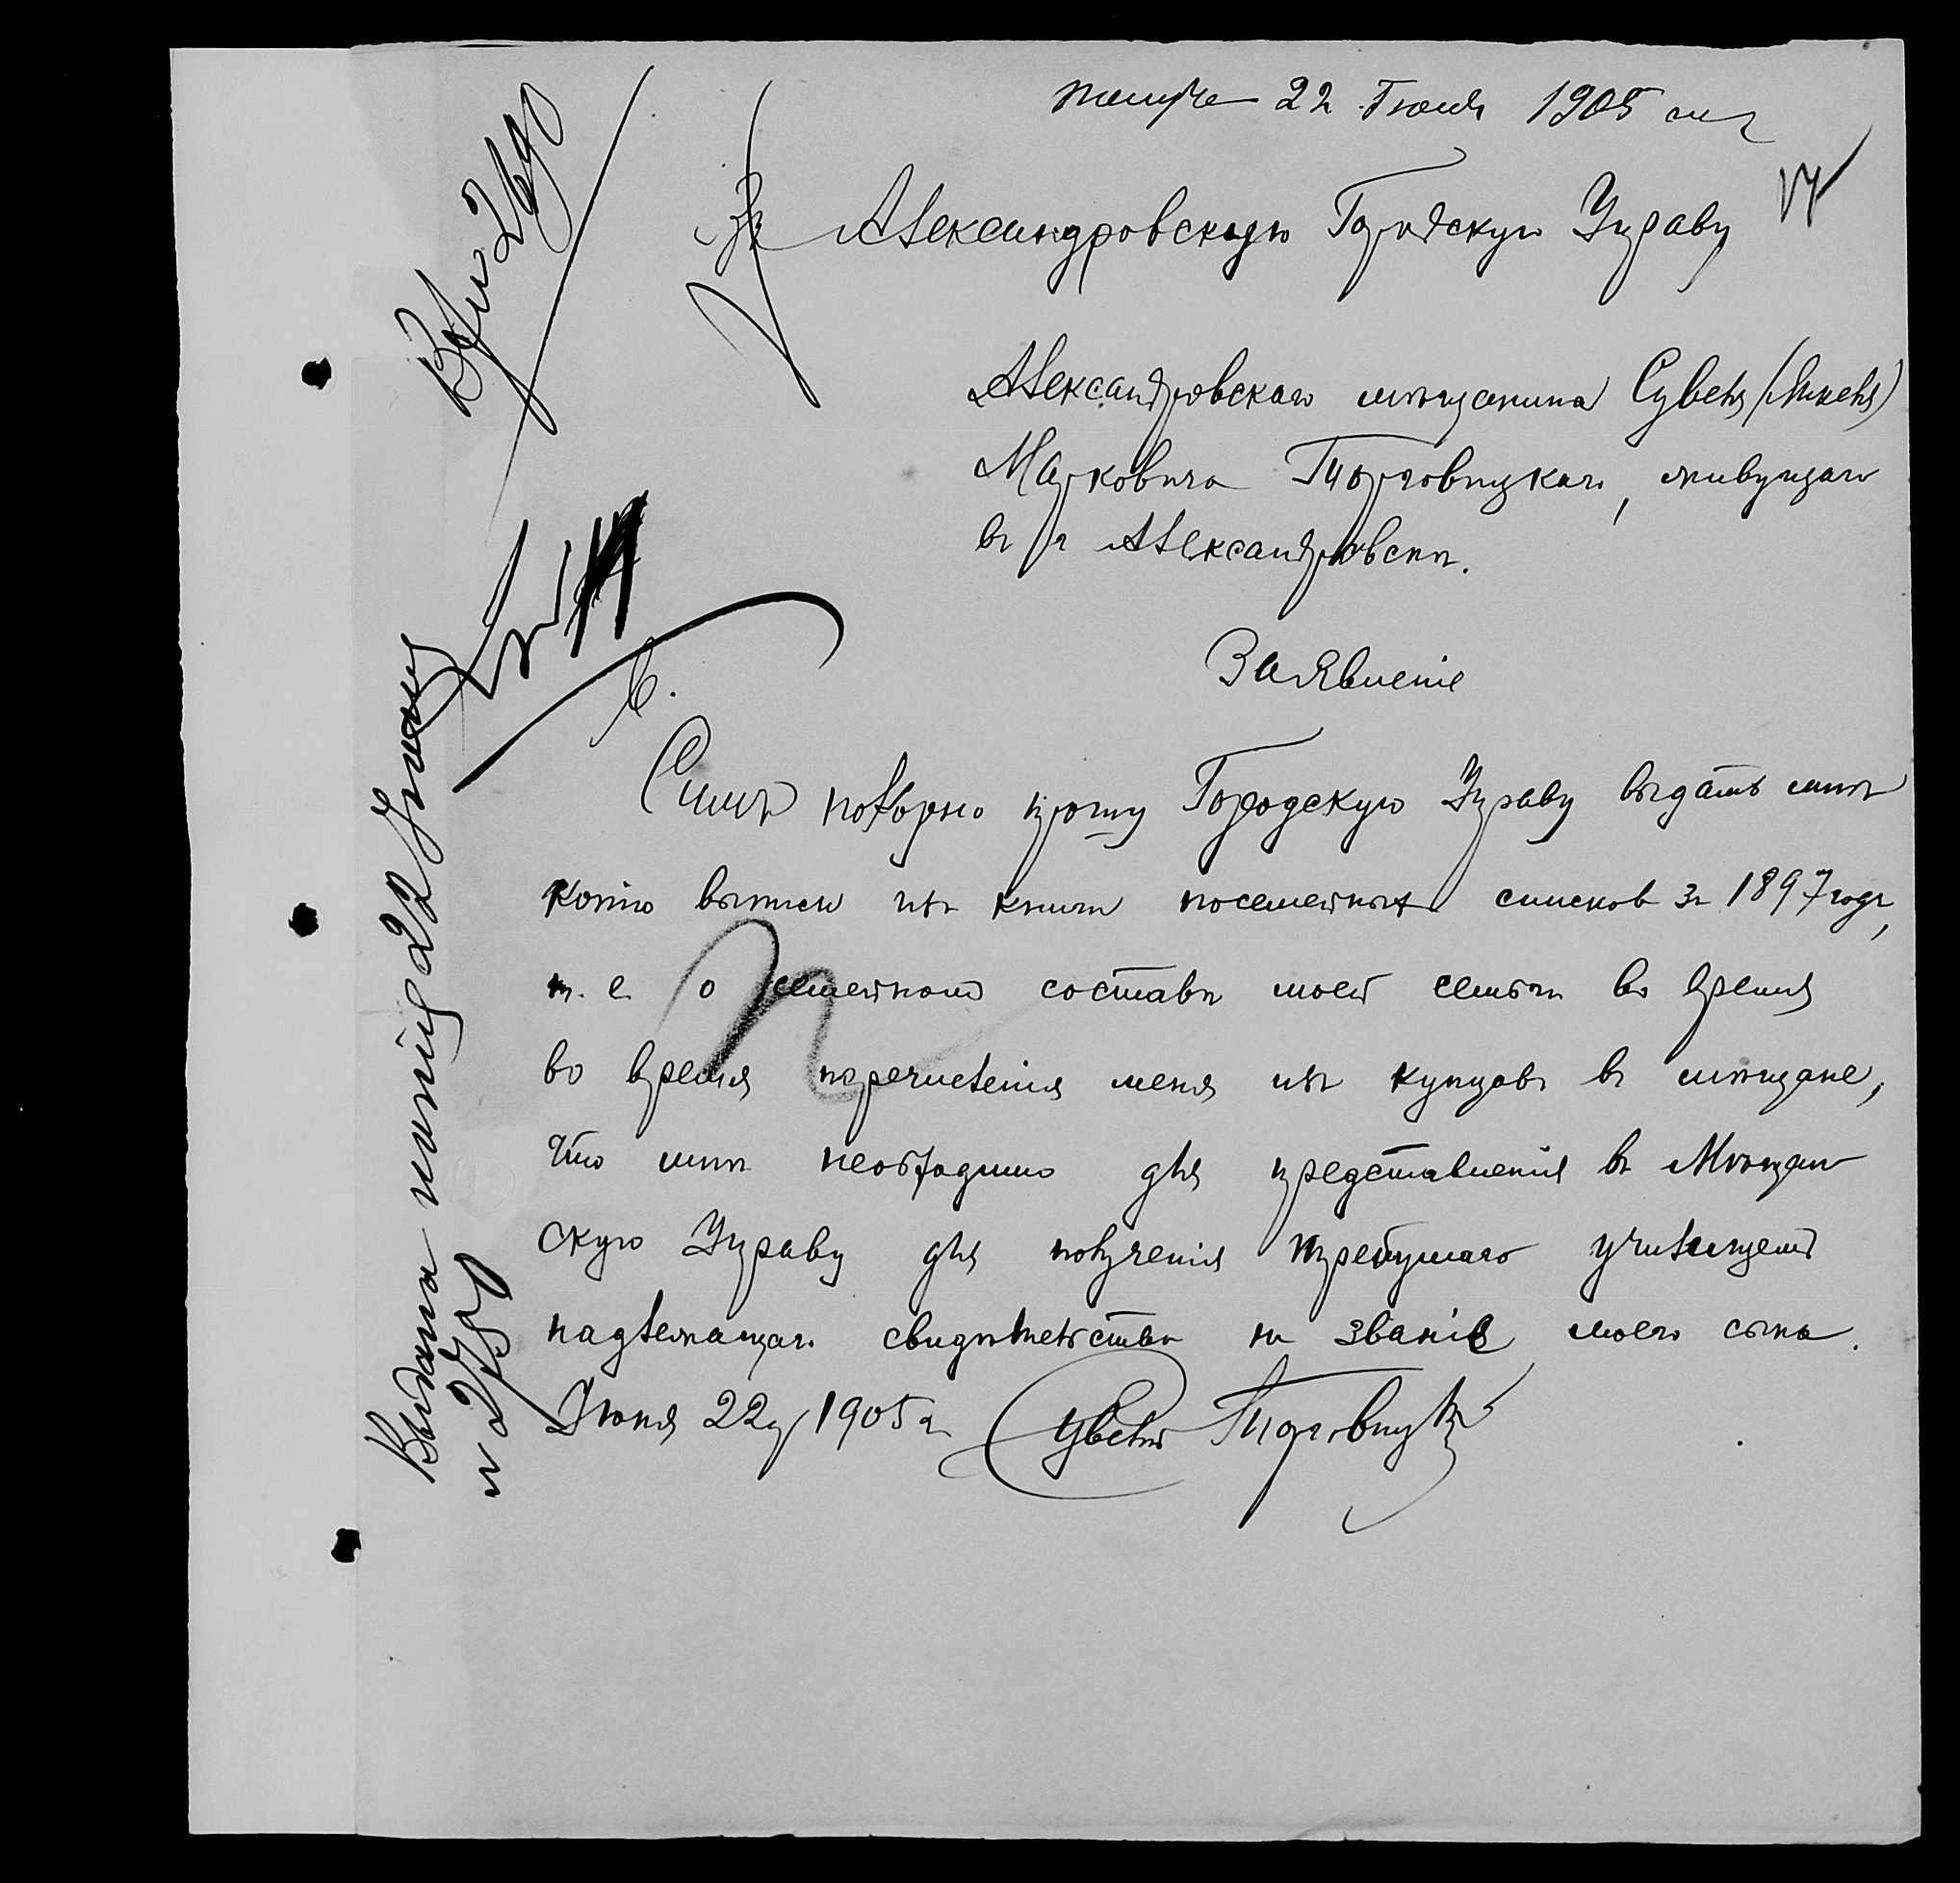 22 Іюня 1905
Въ Александровскую Городскую Управу
Александровскаго мѣщанина Сувеля
Марковича Торговицкаго, живущаго
въ г Александровскѣ.
Заявленіе
Симъ покорно прошу Городскую Управу выдать мнѣ
копію выписи изъ книги посемейныхъ списков за 1897 годъ,
т. е. о семейномъ составѣ моей семьи во время
во время перечисленія меня изъ купцовъ въ мѣщане,
что мнѣ необходимо для представленія въ Мѣщан
скую Управу для полученія требуемаго училищемъ
надлежащаго свидѣтельства на званіе моего сына.
Іюня 22 д 1905 г Сувель Торговицкій
Вх 2690
Выдана 22 Іюня